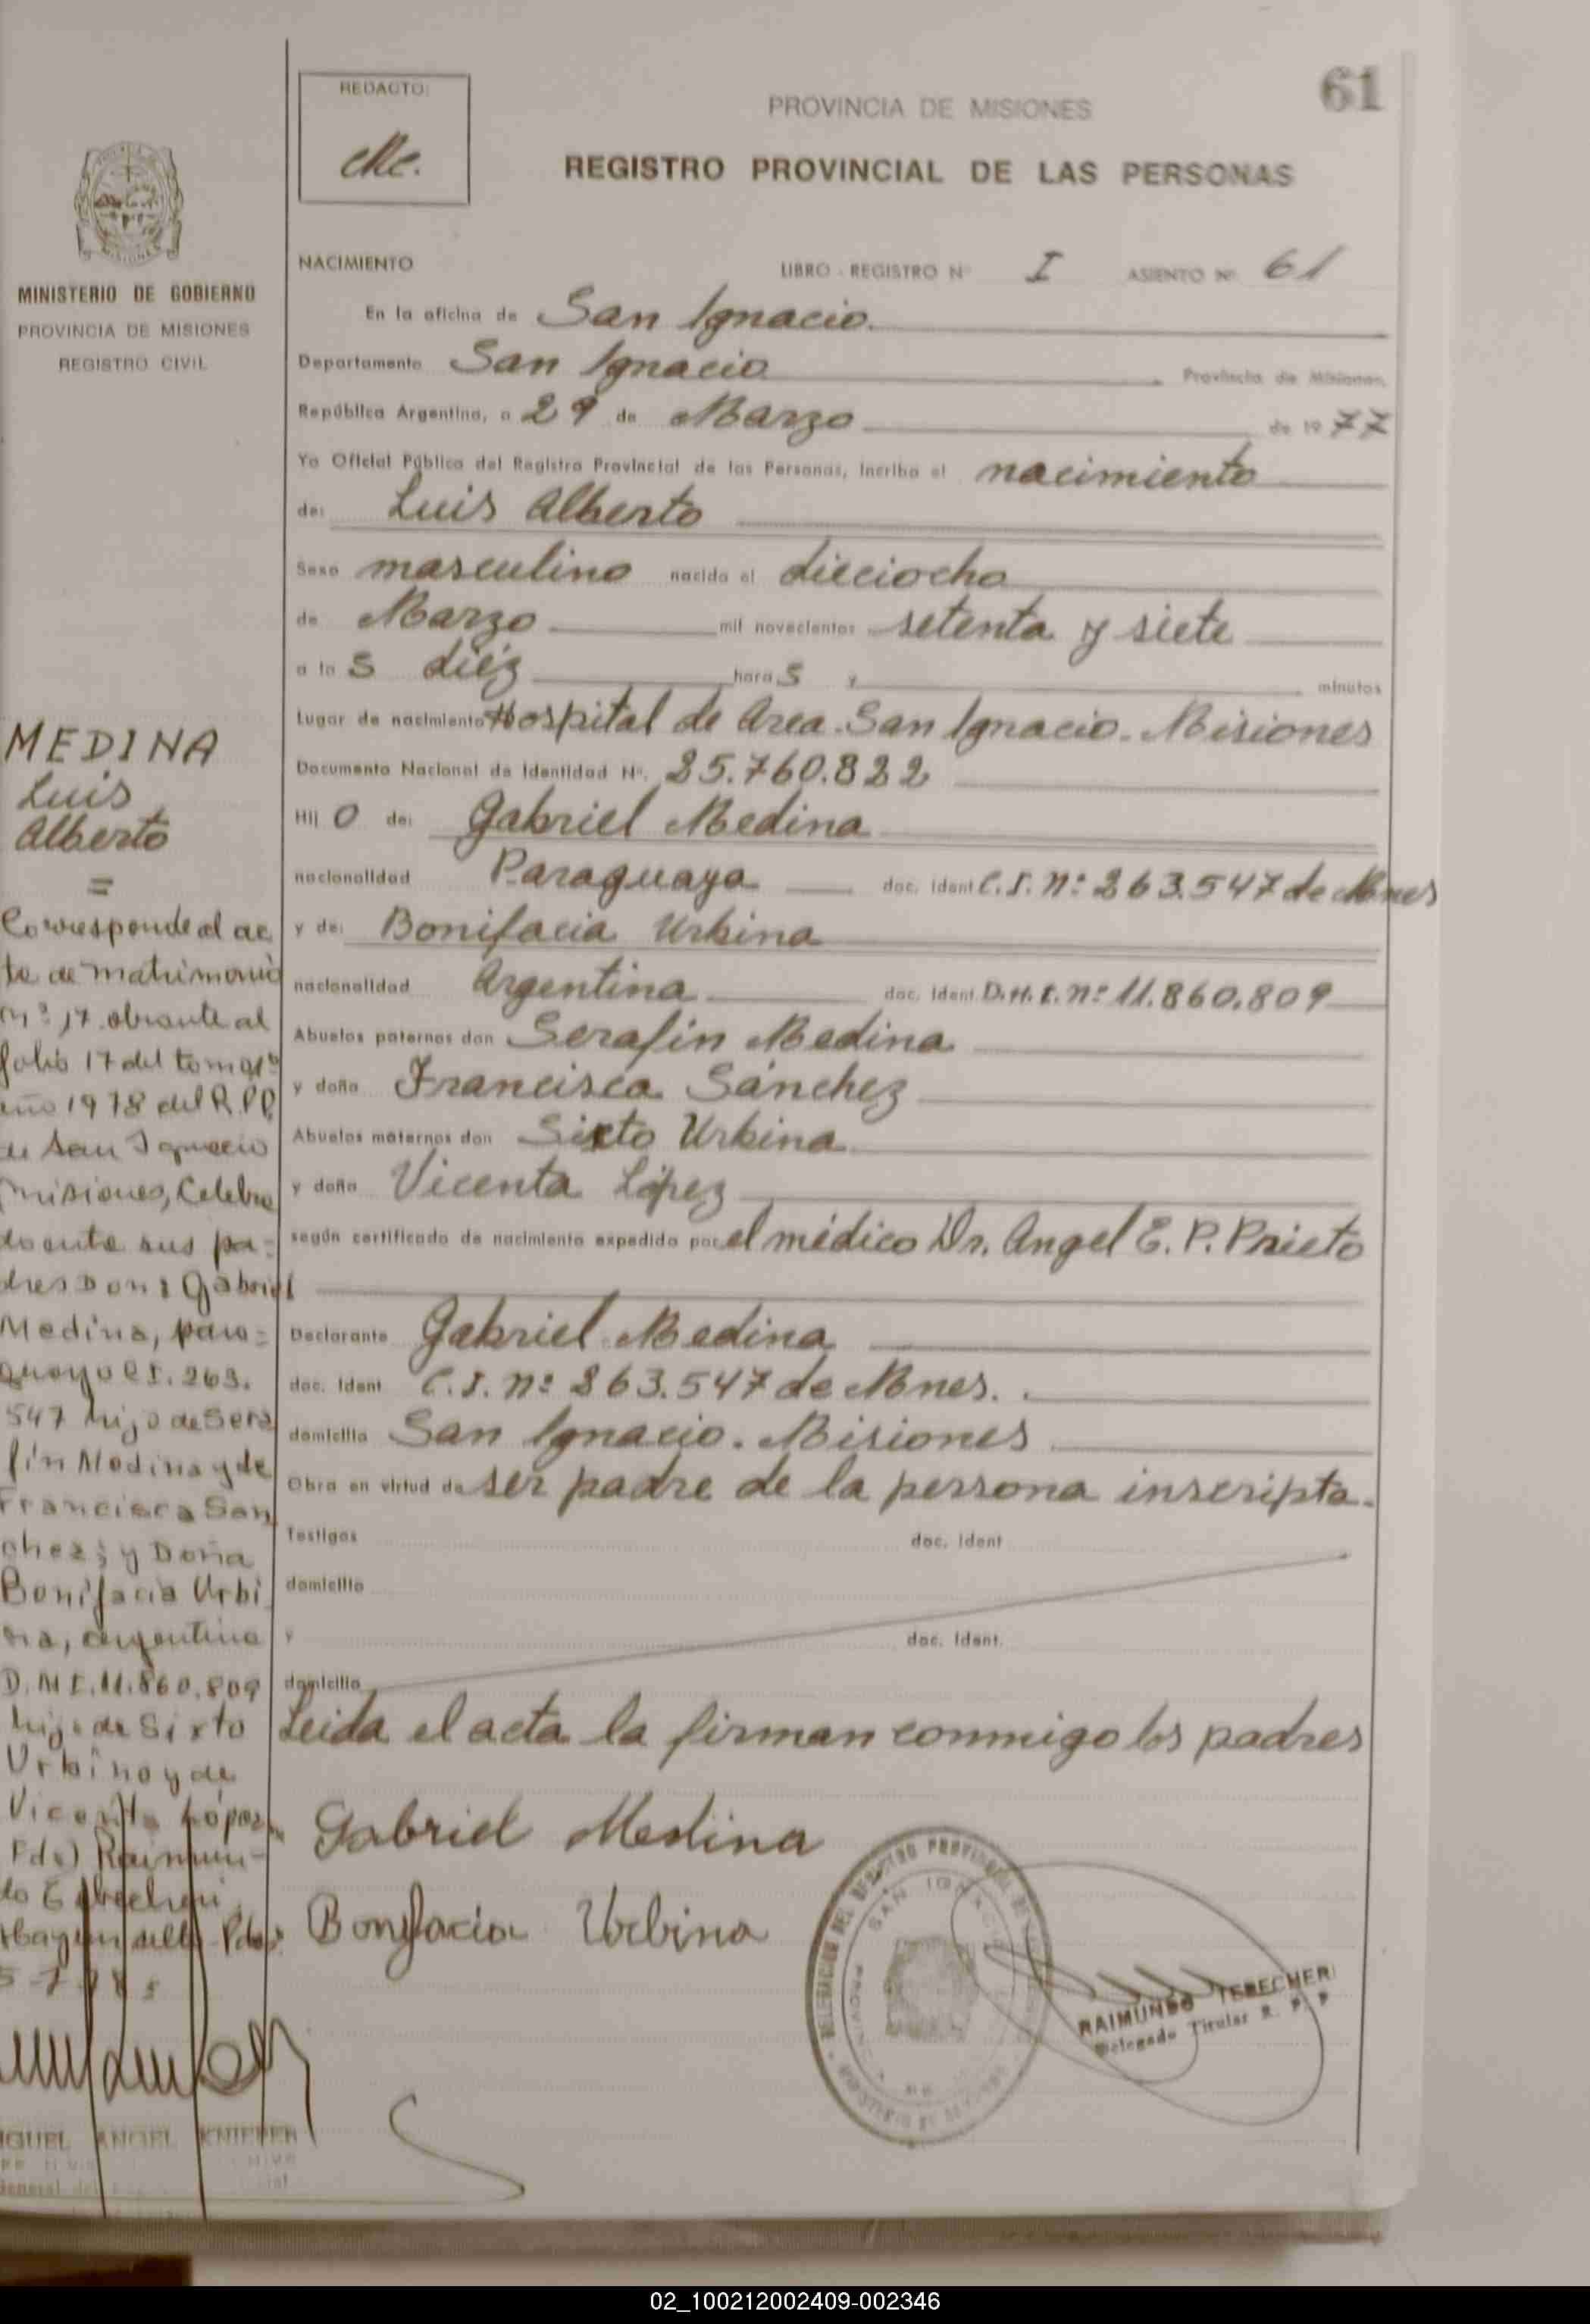 REDACTO:
61
PROVINCIA DE MISIONES
REGISTRO PROVINCIAL DE LAS PERSONAS
MINISTERIO DE GOBIERNO
PROVINCIA DE MISIONES
REGISTRO CIVIL
NACIMIENTO LIBRO - REGISTRO Nº I ASIENTO Nº 61
En la oficina de San Ignacio.
Departamento San Ignacio Provincia de Misiones,
República Argentina, a 29 de Marzo de 1977
Yo Oficial Público del Registro Provincial de las Personas, incribo el nacimiento
de: Luis Alberto
Sexo masculino nacido el dieciocho
de Marzo mil novecientos setenta y siete
a las diéz horas y minutos
Lugar de nacimiento Hospital de Area. San Ignacio. Misiones
Documento Nacional de Identidad Nº. 25.760.822
Hijo de: Gabriel Medina
nacionalidad Paraguaya doc. ident C.I. nº 263.547 de Mnes
y de: Bonifacia Urbina
nacionalidad Argentina doc. ident. D.N.I. nº 11.860.809
Abuelos paternos don Serafín Medina
y doña Francisca Sánchez
Abuelos maternos don Sixto Urbina
y doña Vicenta López
según certificado de nacimiento expedido por el médico Dr. Angel E. P. Prieto
Declarante Gabriel Medina
doc. ident C.I. nº 263.547 de Mnes.
domicilio San Ignacio. Misiones
Obra en virtud de ser padre de la persona inscripta.
Testigos doc. ident
domicilio
y doc. ident.
domicilio
Leida el acta la firman conmigo los padres
Gabriel Medina
Bonifacia Urbina
DELEGACION DEL REGISTRO PROVINCIAL DE
SAN IGNACIO
RAIMUNDO TEBECHERI
Delegado Titular R. P. P
MEDINA
Luis
Alberto
=
Corresponde al ac
ta de matrimonio
nº 17 obrante al
folio 17 del tomo 1º
año 1978 del R.P.P.
de San Ignacio
Misiones, Celebra
do ante sus pa=
dres Don: Gabriel
Medina, para=
guayo C I. 263.
547 hijo de Sera
fín Medina y de
Francisca San
chez; y Doña
Bonifacia Urbi
na, argentina
D.N I. 11.860.809
hija de Sixto
Urbina y de
Vicenta López.
Fdo) Raimun-
do Tebecheri
Pdas
MIGUEL ANGEL KNIEPER
General del
02_100212002409-002346